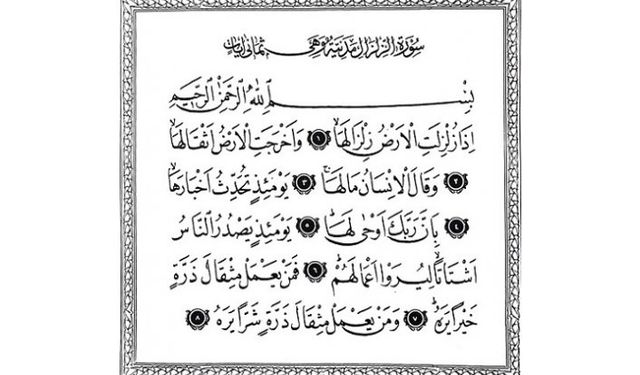 سُورَةُ الزِّلْزَالِ مَدَنِيَّةٌ وَهِيَ ثَمَانِي اٰيَاتٍ
بِسْمِ اللّٰهِ الرَّحْمٰنِ الرَّحِيمِ
اِذَا زُلْزِلَتِ الْاَرْضُ زِلْزَالَهَاۙ ﴿١﴾ وَاَخْرَجَتِ الْاَرْضُ اَثْقَالَهَاۙ
﴿٢﴾ وَقَالَ الْاِنْسَانُ مَالَهَاۚ ﴿٣﴾ يَوْمَئِذٍ تُحَدِّثُ اَخْبَارَهَاۙ
﴿٤﴾ بِاَنَّ رَبَّكَ اَوْحٰى لَهَاۜ ﴿٥﴾ يَوْمَئِذٍ يَصْدُرُ النَّاسُ
اَشْتَاتًا لِيُرَوْا اَعْمَالَهُمْۜ ﴿٦﴾ فَمَنْ يَعْمَلْ مِثْقَالَ ذَرَّةٍ
خَيْرًا يَرَهُۜ ﴿٧﴾ وَمَنْ يَعْمَلْ مِثْقَالَ ذَرَّةٍ شَرًّا يَرَهُ ﴿٨﴾